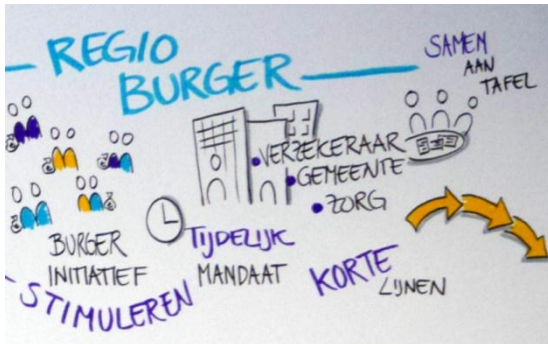 REGIO
BURGER
SAMEN
AAN
TAFEL
• VERZEKERAAR
• GEMEENTE
• ZORG
BURGER
INITIATIEF
STIMULEREN
TIJDELIJK
MANDAAT
KORTE
LIJNEN